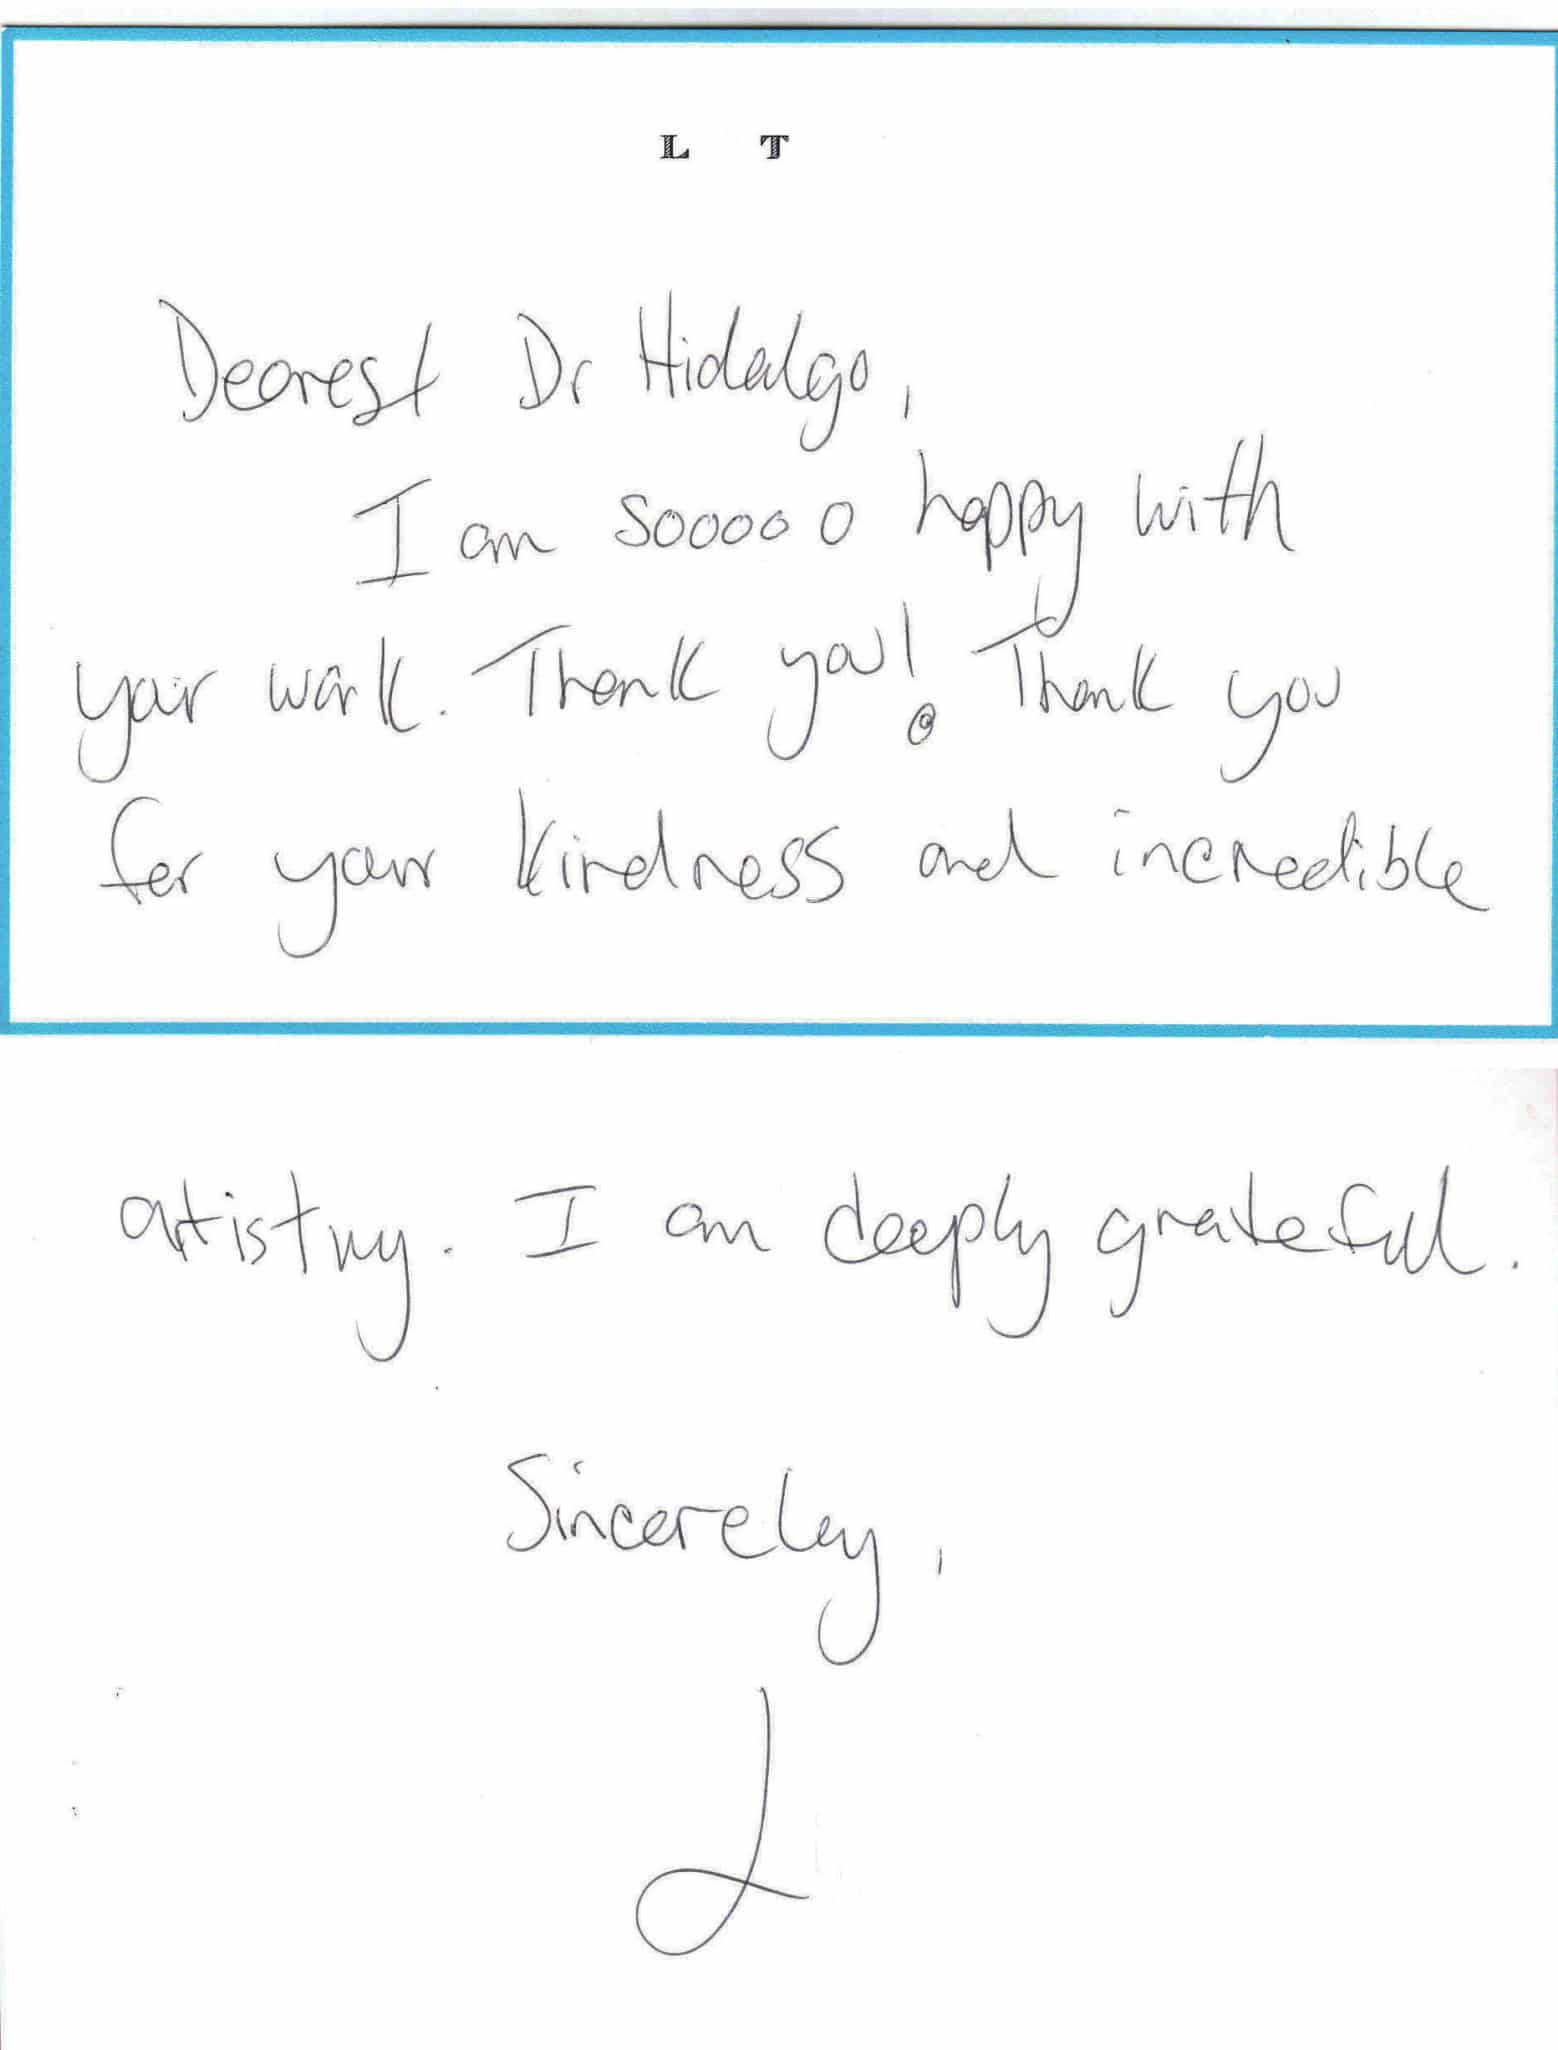 L T
Dearest Dr Hidalgo,
I am sooooo happy with
your work. Thank you! Thank you
for your kindness and incredible
artistry. I am deeply grateful.
Sincerely,
L